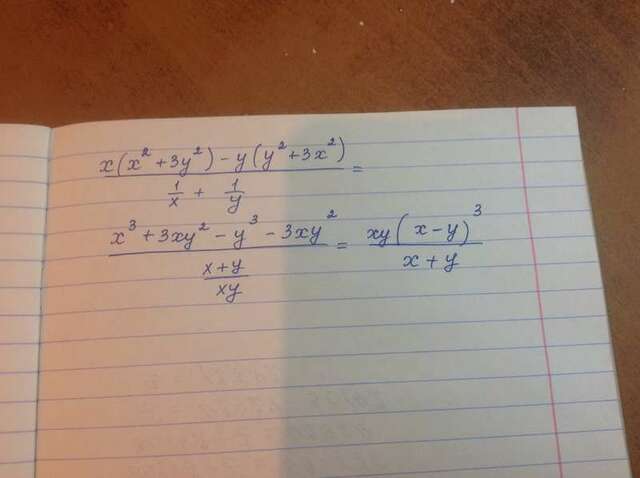 x(x² + 3y²) - y(y² + 3x²) / (1/x + 1/y) =
x³ + 3xy² - y³ - 3xy² / ((x+y)/xy) = xy(x-y)³ / (x+y)